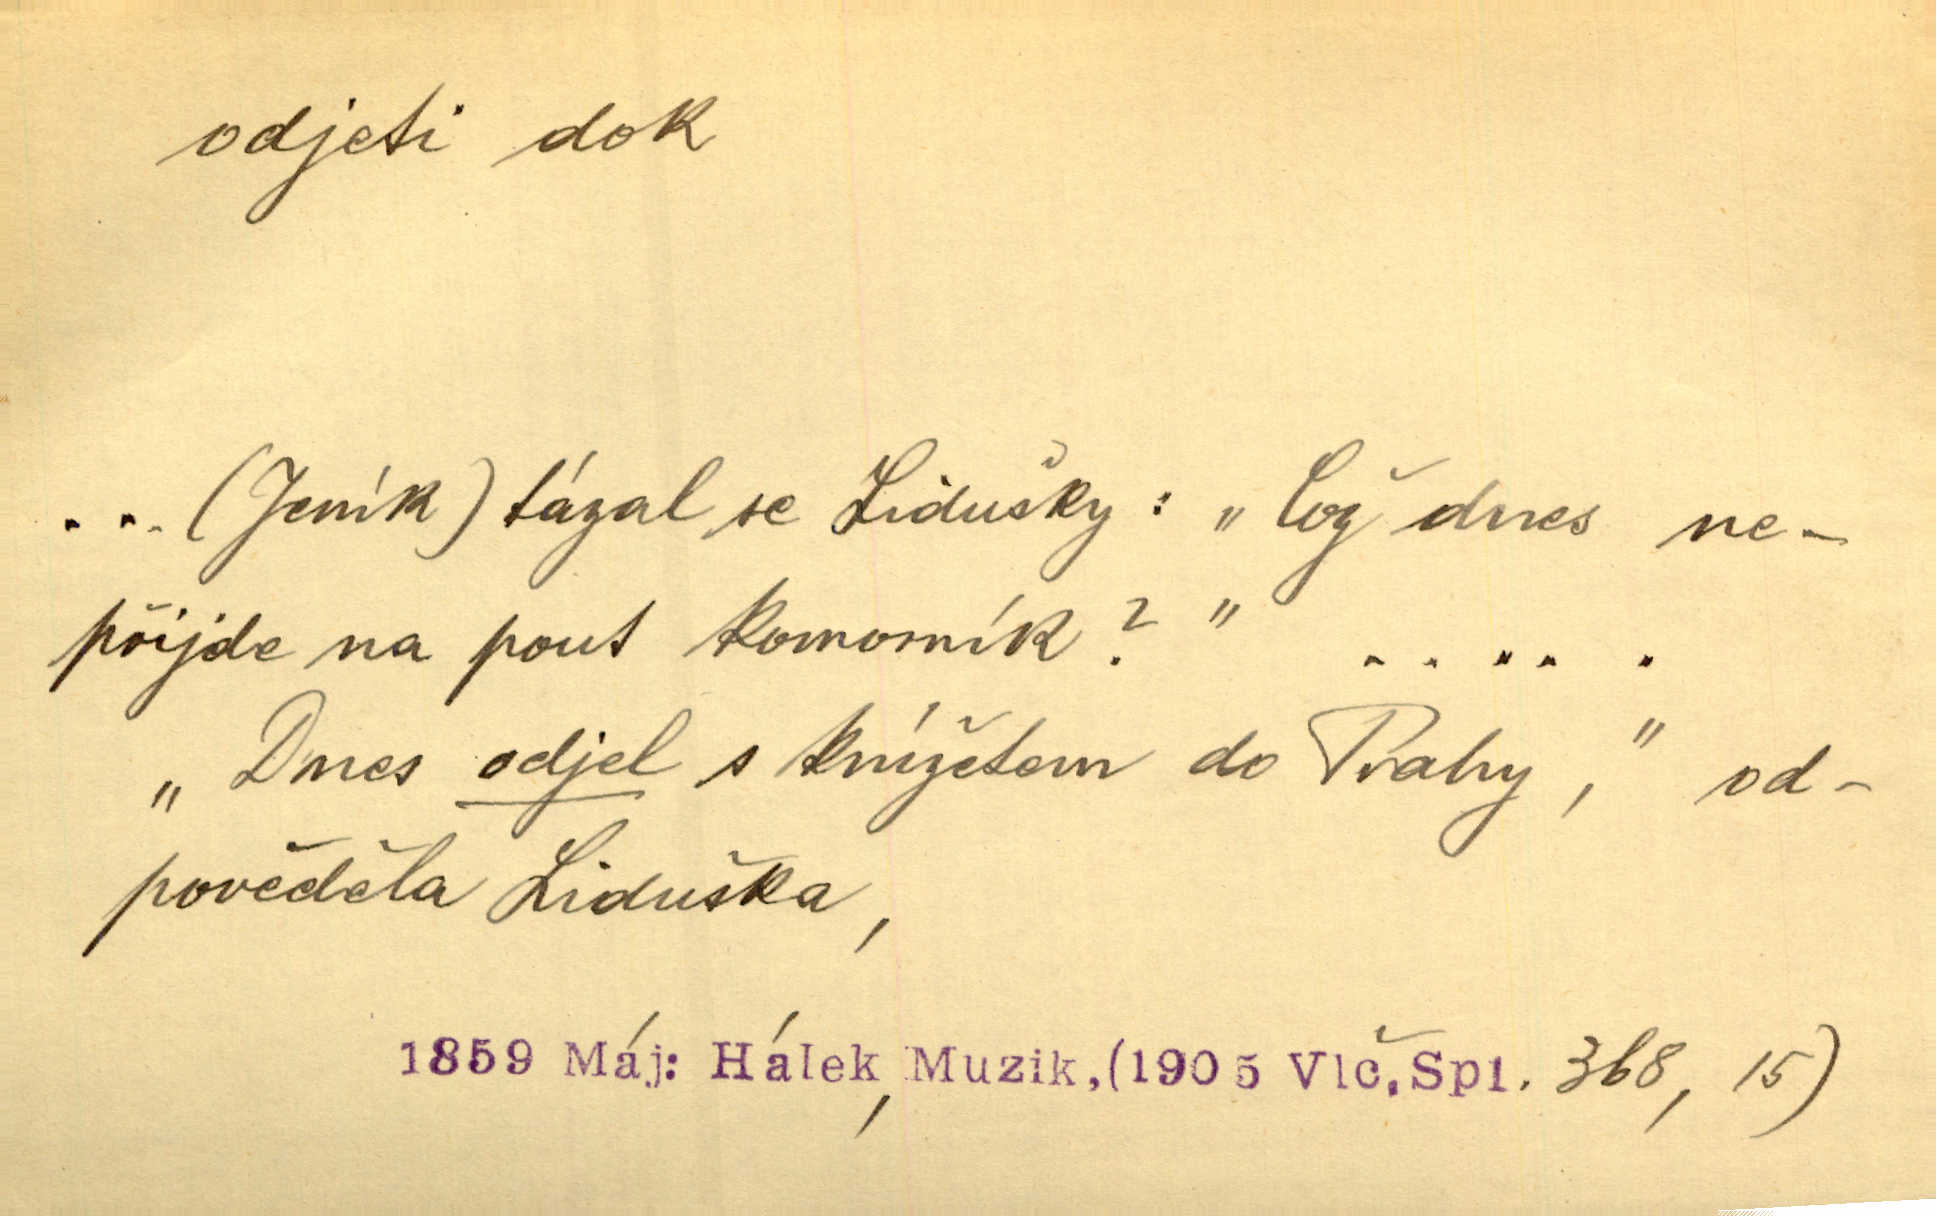 odjeti dok
... (Jeník) tázal se Lidušky: „Což dnes ne-
přijde na pout komorník?" .....
„Dnes odjel s knížetem do Prahy," od-
pověděla Liduška,
1859 Máj: Hálek, Muzik,(1905 Vlč.Spl. 368, 15)